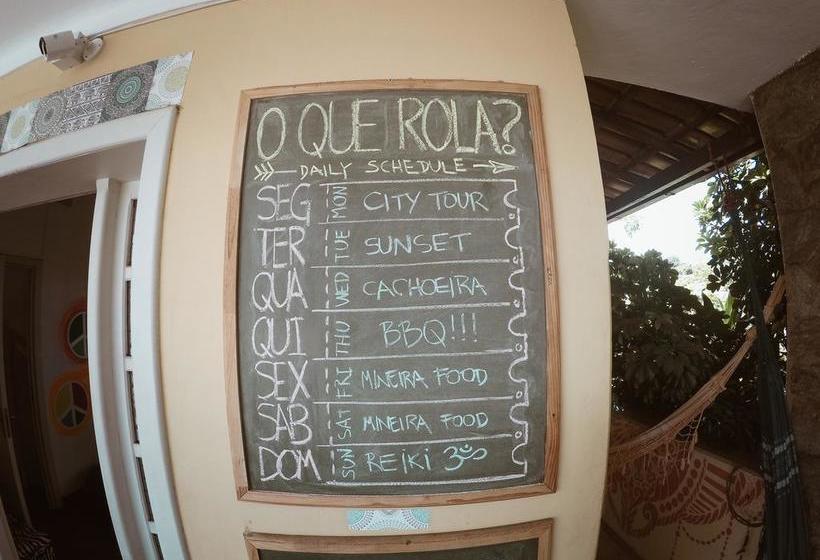 O QUE ROLA?
DAILY SCHEDULE
SEG MON CITY TOUR
TER TUE SUNSET
QUA WED CACHOEIRA
QUI THU BBQ!!!
SEX FRI MINEIRA FOOD
SAB SAT MINEIRA FOOD
DOM SUN REIKI ॐ